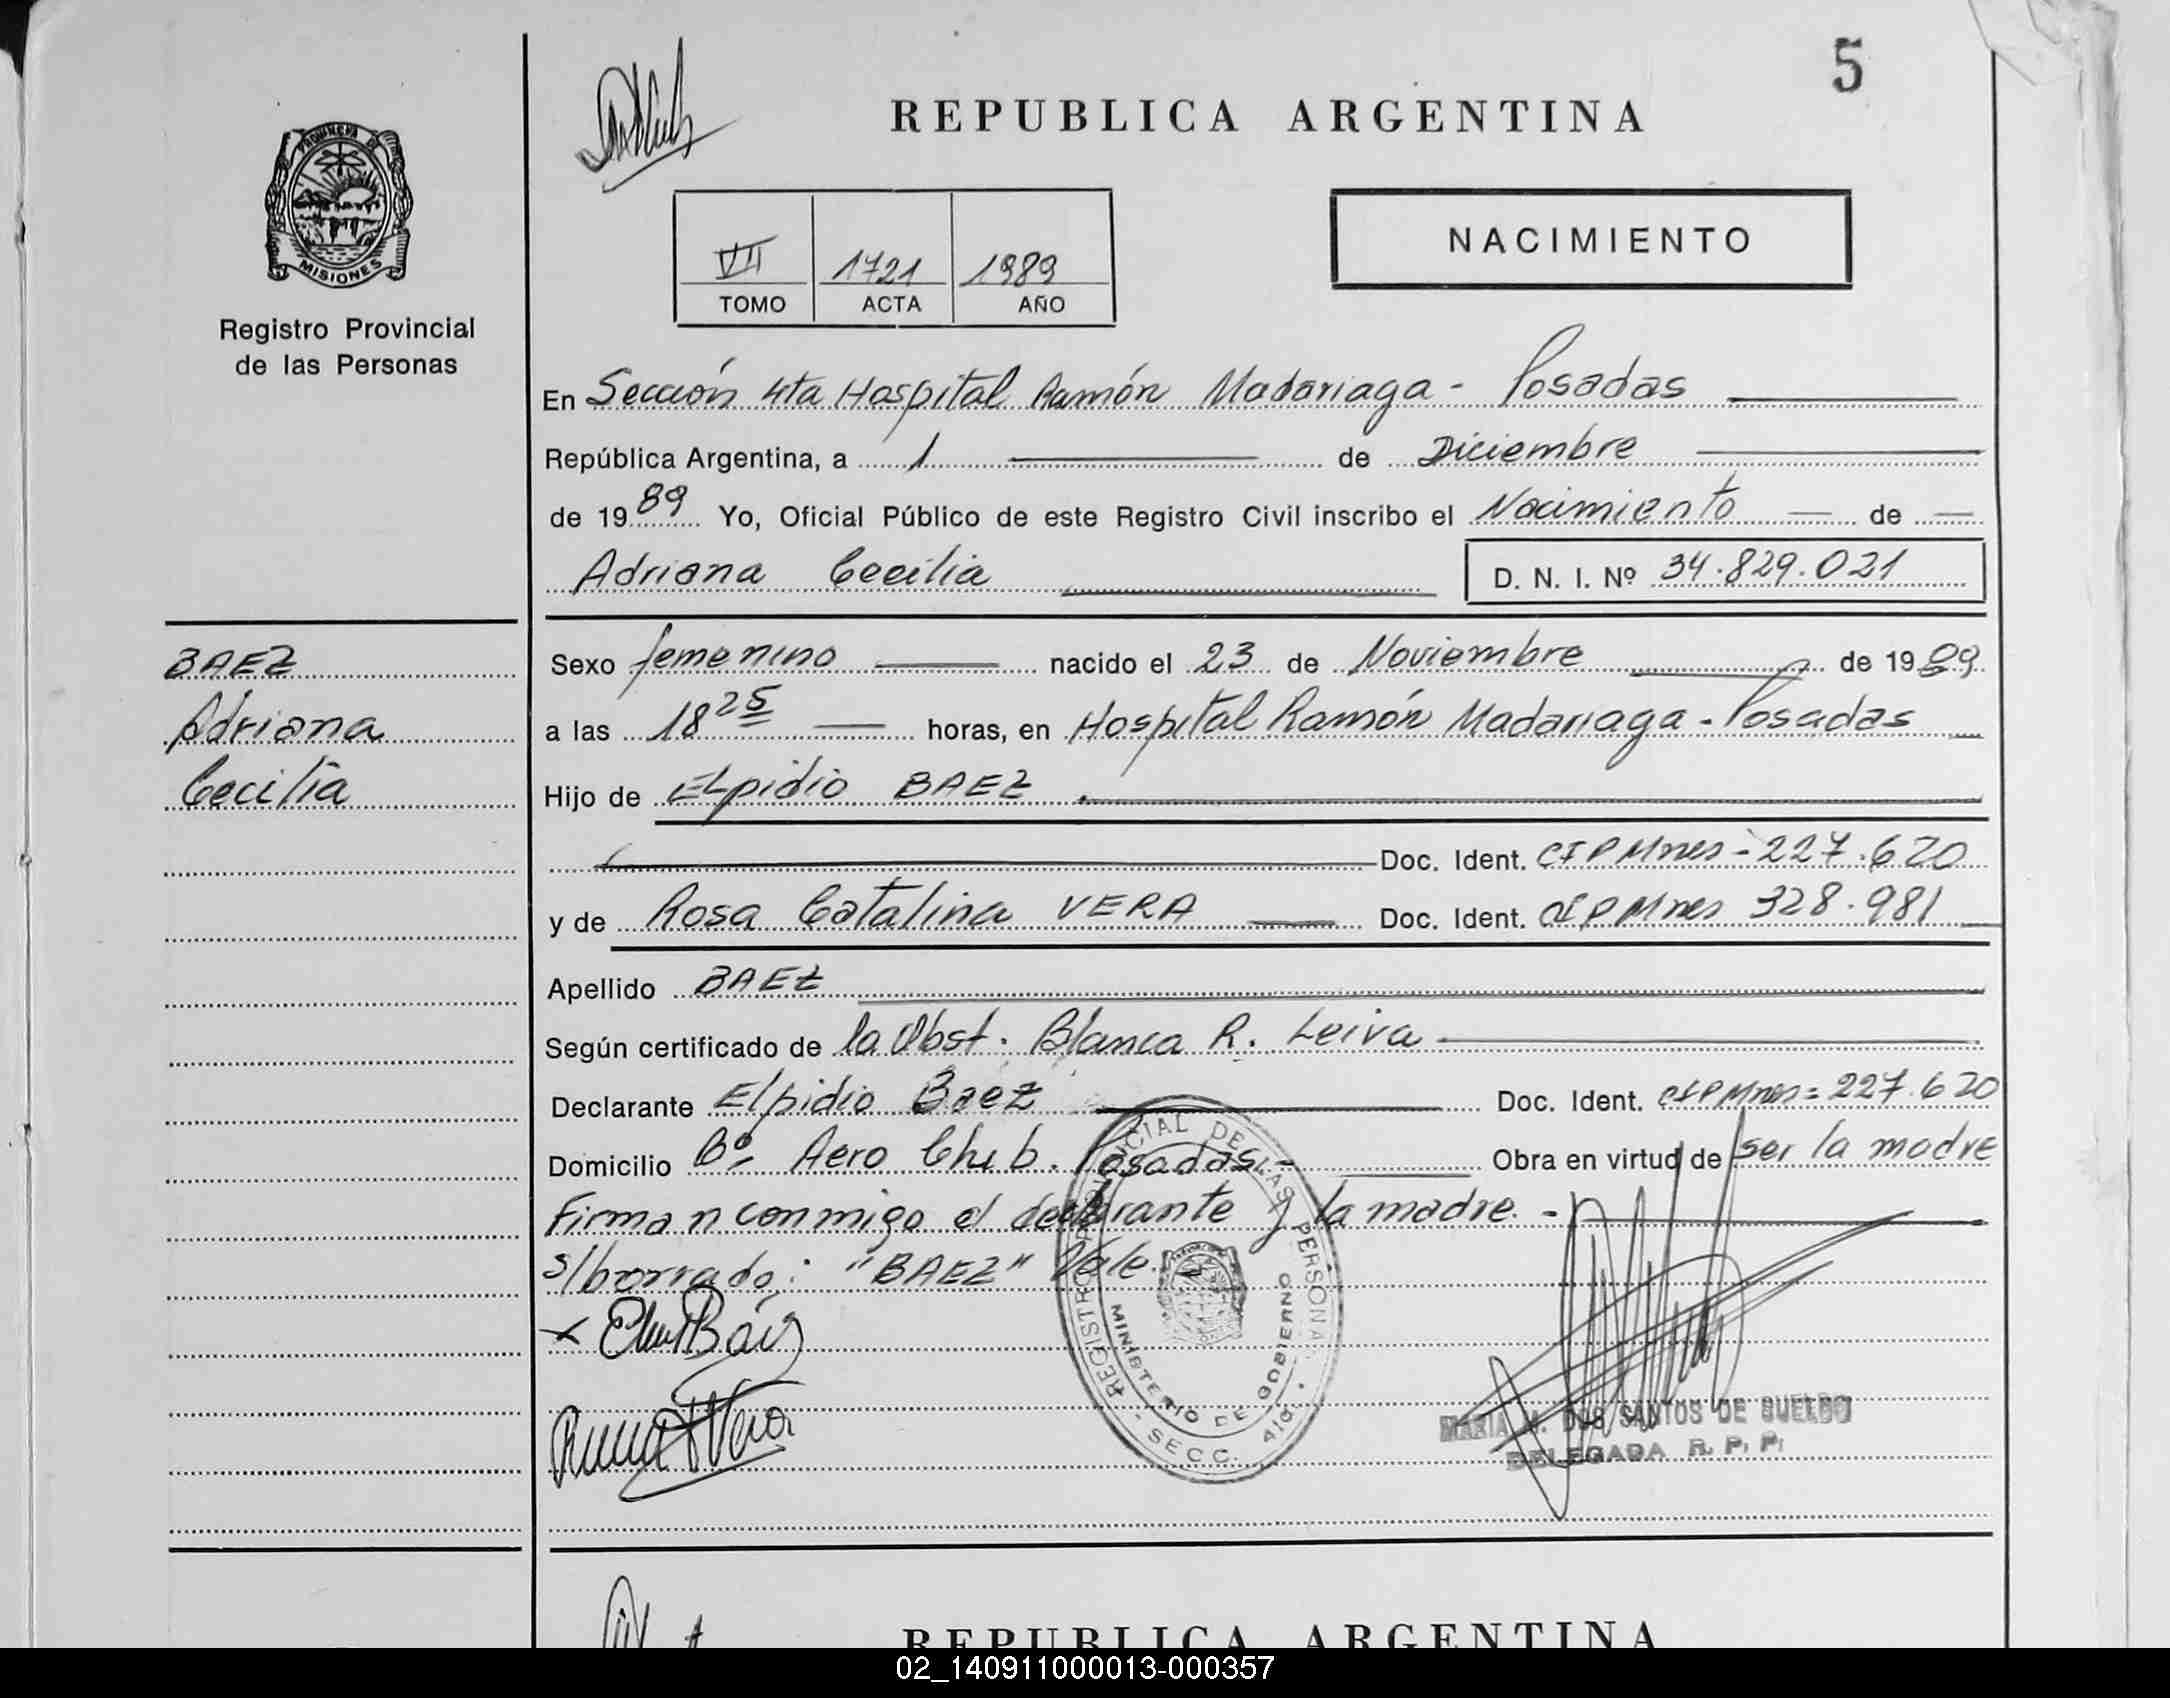 5
REPUBLICA ARGENTINA
PROVINCIA DE
MISIONES
Registro Provincial
de las Personas
NACIMIENTO
VII 1721 1989
TOMO ACTA AÑO
En Sección 4ta Hospital Ramón Madariaga - Posadas
República Argentina, a 1 de Diciembre
de 1989 Yo, Oficial Público de este Registro Civil inscribo el Nacimiento de
Adriana Cecilia D. N. I. Nº 34.829.021
BAEZ
Adriana
Cecilia
Sexo femenino nacido el 23 de Noviembre de 1989
a las 18 25 horas, en Hospital Ramón Madariaga - Posadas
Hijo de Elpidio BAEZ
Doc. Ident. CIPMnes - 227.620
y de Rosa Catalina VERA Doc. Ident. CIPMnes 328.981
Apellido BAEZ
Según certificado de la Obst. Blanca R. Leiva
Declarante Elpidio Baez Doc. Ident. CIPMnes = 227.620
Domicilio Bº Aero Club. Posadas.- Obra en virtud de ser la madre
Firman conmigo el declarante y la madre. -
s/borrado: "BAEZ" Vale. -
x Báez
Vera
REGISTRO PROVINCIAL DE LAS PERSONAS
MINISTERIO DE GOBIERNO
- SECC. 4ta. -
MARIA DOS SANTOS DE
DELEGADA R. P. P.
REPUBLICA ARGENTINA
02_140911000013-000357